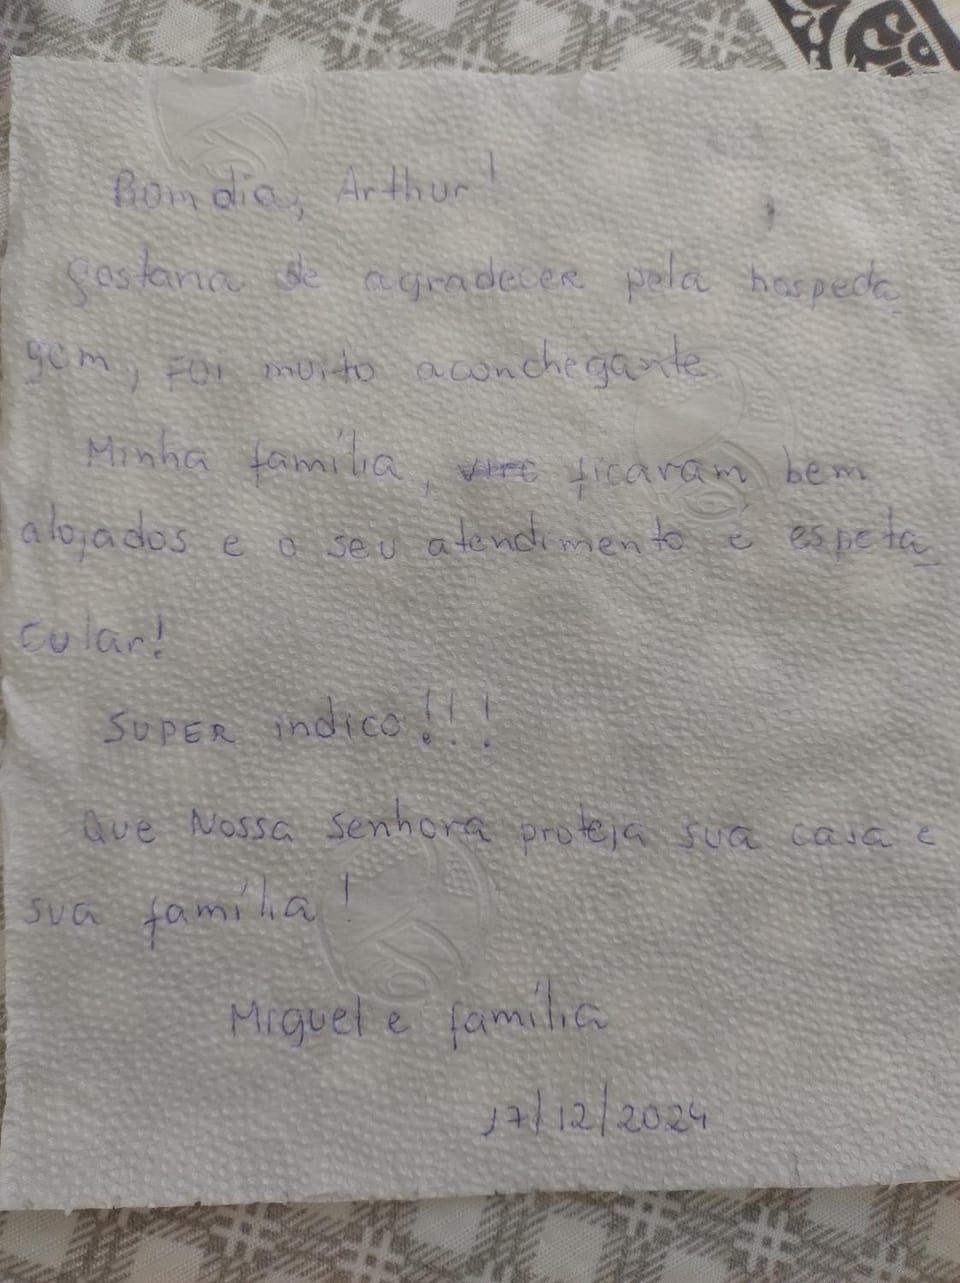 Bom dia, Arthur!
Gostaria de agradecer pela hospeda
gem, Foi muito aconchegante.
Minha família, ficaram bem
alojados e o seu atendimento é espeta_
cular!
SUPER indico!!!
Que Nossa Senhora proteja sua casa e
sua família!
Miguel e família
17/12/2024